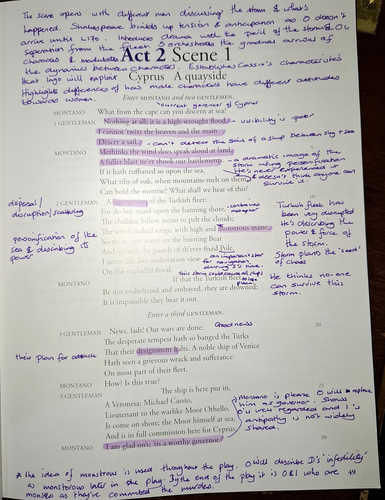 The scene opens with different men discussing the storm & what's
happened. Shakespeare builds up tension & anticipation as O doesn't
arrive until L170. Introduces drama with the peril of the storm & O's
separation from the fleet. S orchestrates the gradual arrival of
characters & modulates
the dynamics between characters. Establishes Cassio's characteristics
that Iago will exploit
Highlights differences of how male characters have different attitudes
towards women.
Act 2 Scene 1
Cyprus A quayside
Enter MONTANO and two GENTLEMEN.
current governor of Cyprus
MONTANO What from the cape can you discern at sea?
1 GENTLEMAN Nothing at all, it is a high-wrought flood: - visibility is poor
I cannot 'twixt the heaven and the main
Descry a sail. - can't detect the sails of a ship between sky & sea
MONTANO Methinks the wind does speak aloud at land,
A fuller blast ne'er shook our battlements:
- a dramatic image of the
storm using personification
He's never experienced it
& doesn't think anyone can
survive it.
If it hath ruffianed so upon the sea,
What ribs of oak, when mountains melt on them,
Can hold the mortise? What shall we hear of this?
dispersal/
disruption/scattering
2 GENTLEMAN A of the Turkish fleet:
For do but stand upon the banning shore,
The chidden billow seems to pelt the clouds;
The wind-shaked surge, with high and monstrous mane,
personification of the
sea & describing its
power
Seems to cast water on the burning Bear
And quench the guards of th'ever-fired Pole.
an important star
for navigation
I never did like molestation view
On the enchafed flood.
Turkish fleet has
been very disrupted
He's describing the
power & force of
the storm.
Storm plants the 'seed'
of chaos
MONTANO If that the Turkish fleet
Be not ensheltered and embayed, they are drowned:
It is impossible they bear it out.
He thinks no-one
can survive this
storm.
Enter a third GENTLEMAN.
3 GENTLEMAN News, lads! Our wars are done: Good news
20
The desperate tempest hath so banged the Turks
their plan for attack
That their designment halts. A noble ship of Venice
Hath seen a grievous wrack and sufferance
On most part of their fleet.
MONTANO How? Is this true?
3 GENTLEMAN The ship is here put in,
25
A Veronessa; Michael Cassio,
Lieutenant to the warlike Moor Othello,
Is come on shore; the Moor himself at sea,
And is in full commission here for Cyprus.
MONTANO I am glad on't, 'tis a worthy governor.
Montano is pleased O will replace
him as governor. Shows
O is well regarded and I's
antipathy is not widely
shared.
* the idea of monstrous is used throughout the play. O will describe D's 'infidelity'
as monstrous later in the play. By the end of the play it is O & I who are
monsters as they've committed the murders.
49